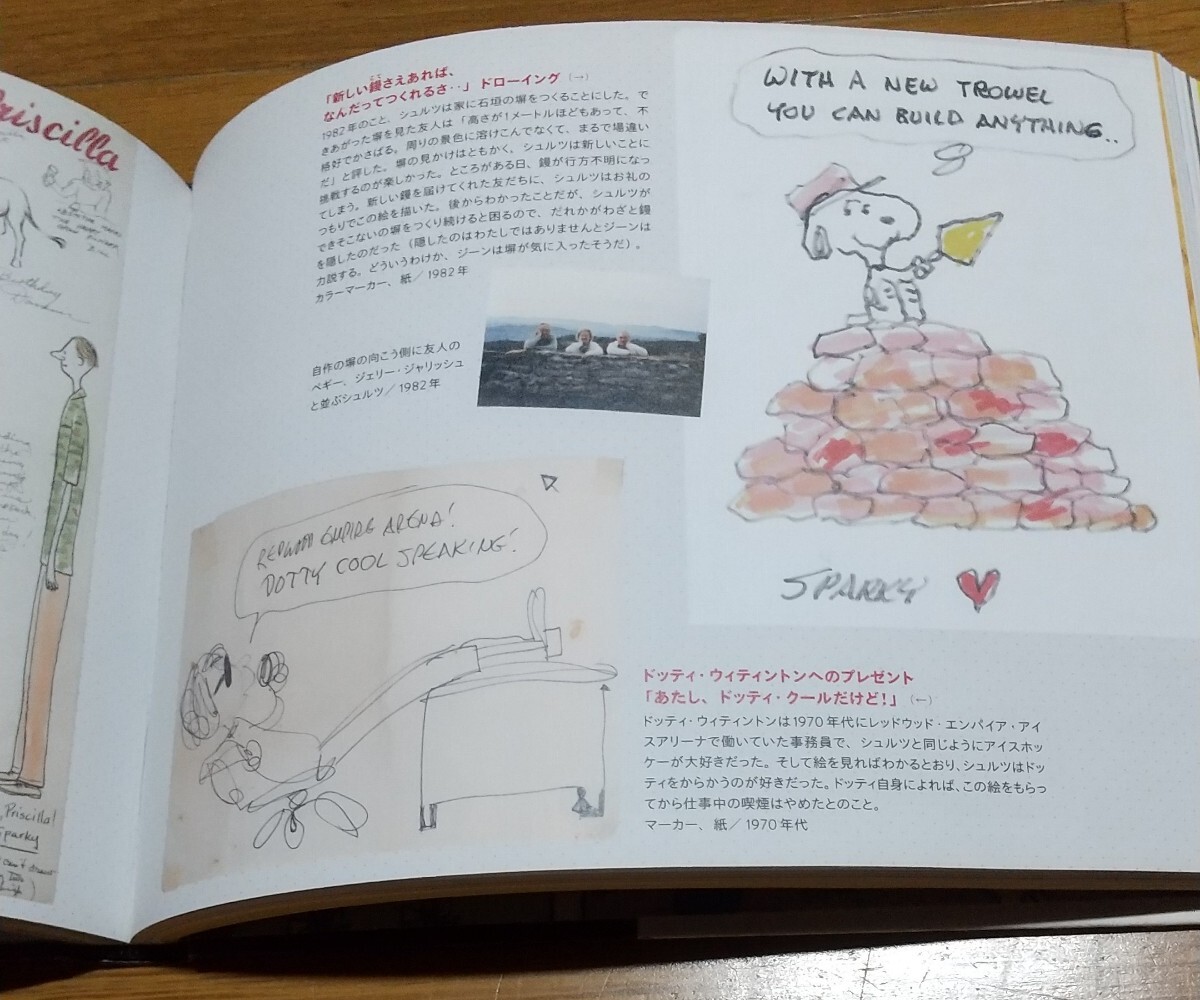 riscilla
Birthday
Priscilla!
Sparky
「新しい鏝さえあれば、
なんだってつくれるさ‥」 ドローイング (→)
1982年のこと、シュルツは家に石垣の塀をつくることにした。で
きあがった塀を見た友人は「高さが1メートルほどもあって、不
格好でかさばる。周りの景色に溶けこんでなくて、まるで場違い
だ」と評した。塀の見かけはともかく、シュルツは新しいことに
挑戦するのが楽しかった。ところがある日、鏝が行方不明になっ
てしまう。新しい鏝を届けてくれた友だちに、シュルツはお礼の
つもりでこの絵を描いた。後からわかったことだが、シュルツが
できそこないの塀をつくり続けると困るので、だれかがわざと鏝
を隠したのだった（隠したのはわたしではありませんとジーンは
力説する。どういうわけか、ジーンは塀が気に入ったそうだ）。
カラーマーカー、紙／1982年
自作の塀の向こう側に友人の
ペギー、ジェリー・ジャリッシュ
と並ぶシュルツ／1982年
WITH A NEW TROWEL
YOU CAN BUILD ANYTHING..
SPARKY
REDWOOD EMPIRE ARENA!
DOTTY COOL SPEAKING!
ドッティ・ウィティントンへのプレゼント
「あたし、ドッティ・クールだけど！」 (←)
ドッティ・ウィティントンは1970年代にレッドウッド・エンパイア・アイ
スアリーナで働いていた事務員で、シュルツと同じようにアイスホッ
ケーが大好きだった。そして絵を見ればわかるとおり、シュルツはドッ
ティをからかうのが好きだった。ドッティ自身によれば、この絵をもらっ
てから仕事中の喫煙はやめたとのこと。
マーカー、紙／1970年代